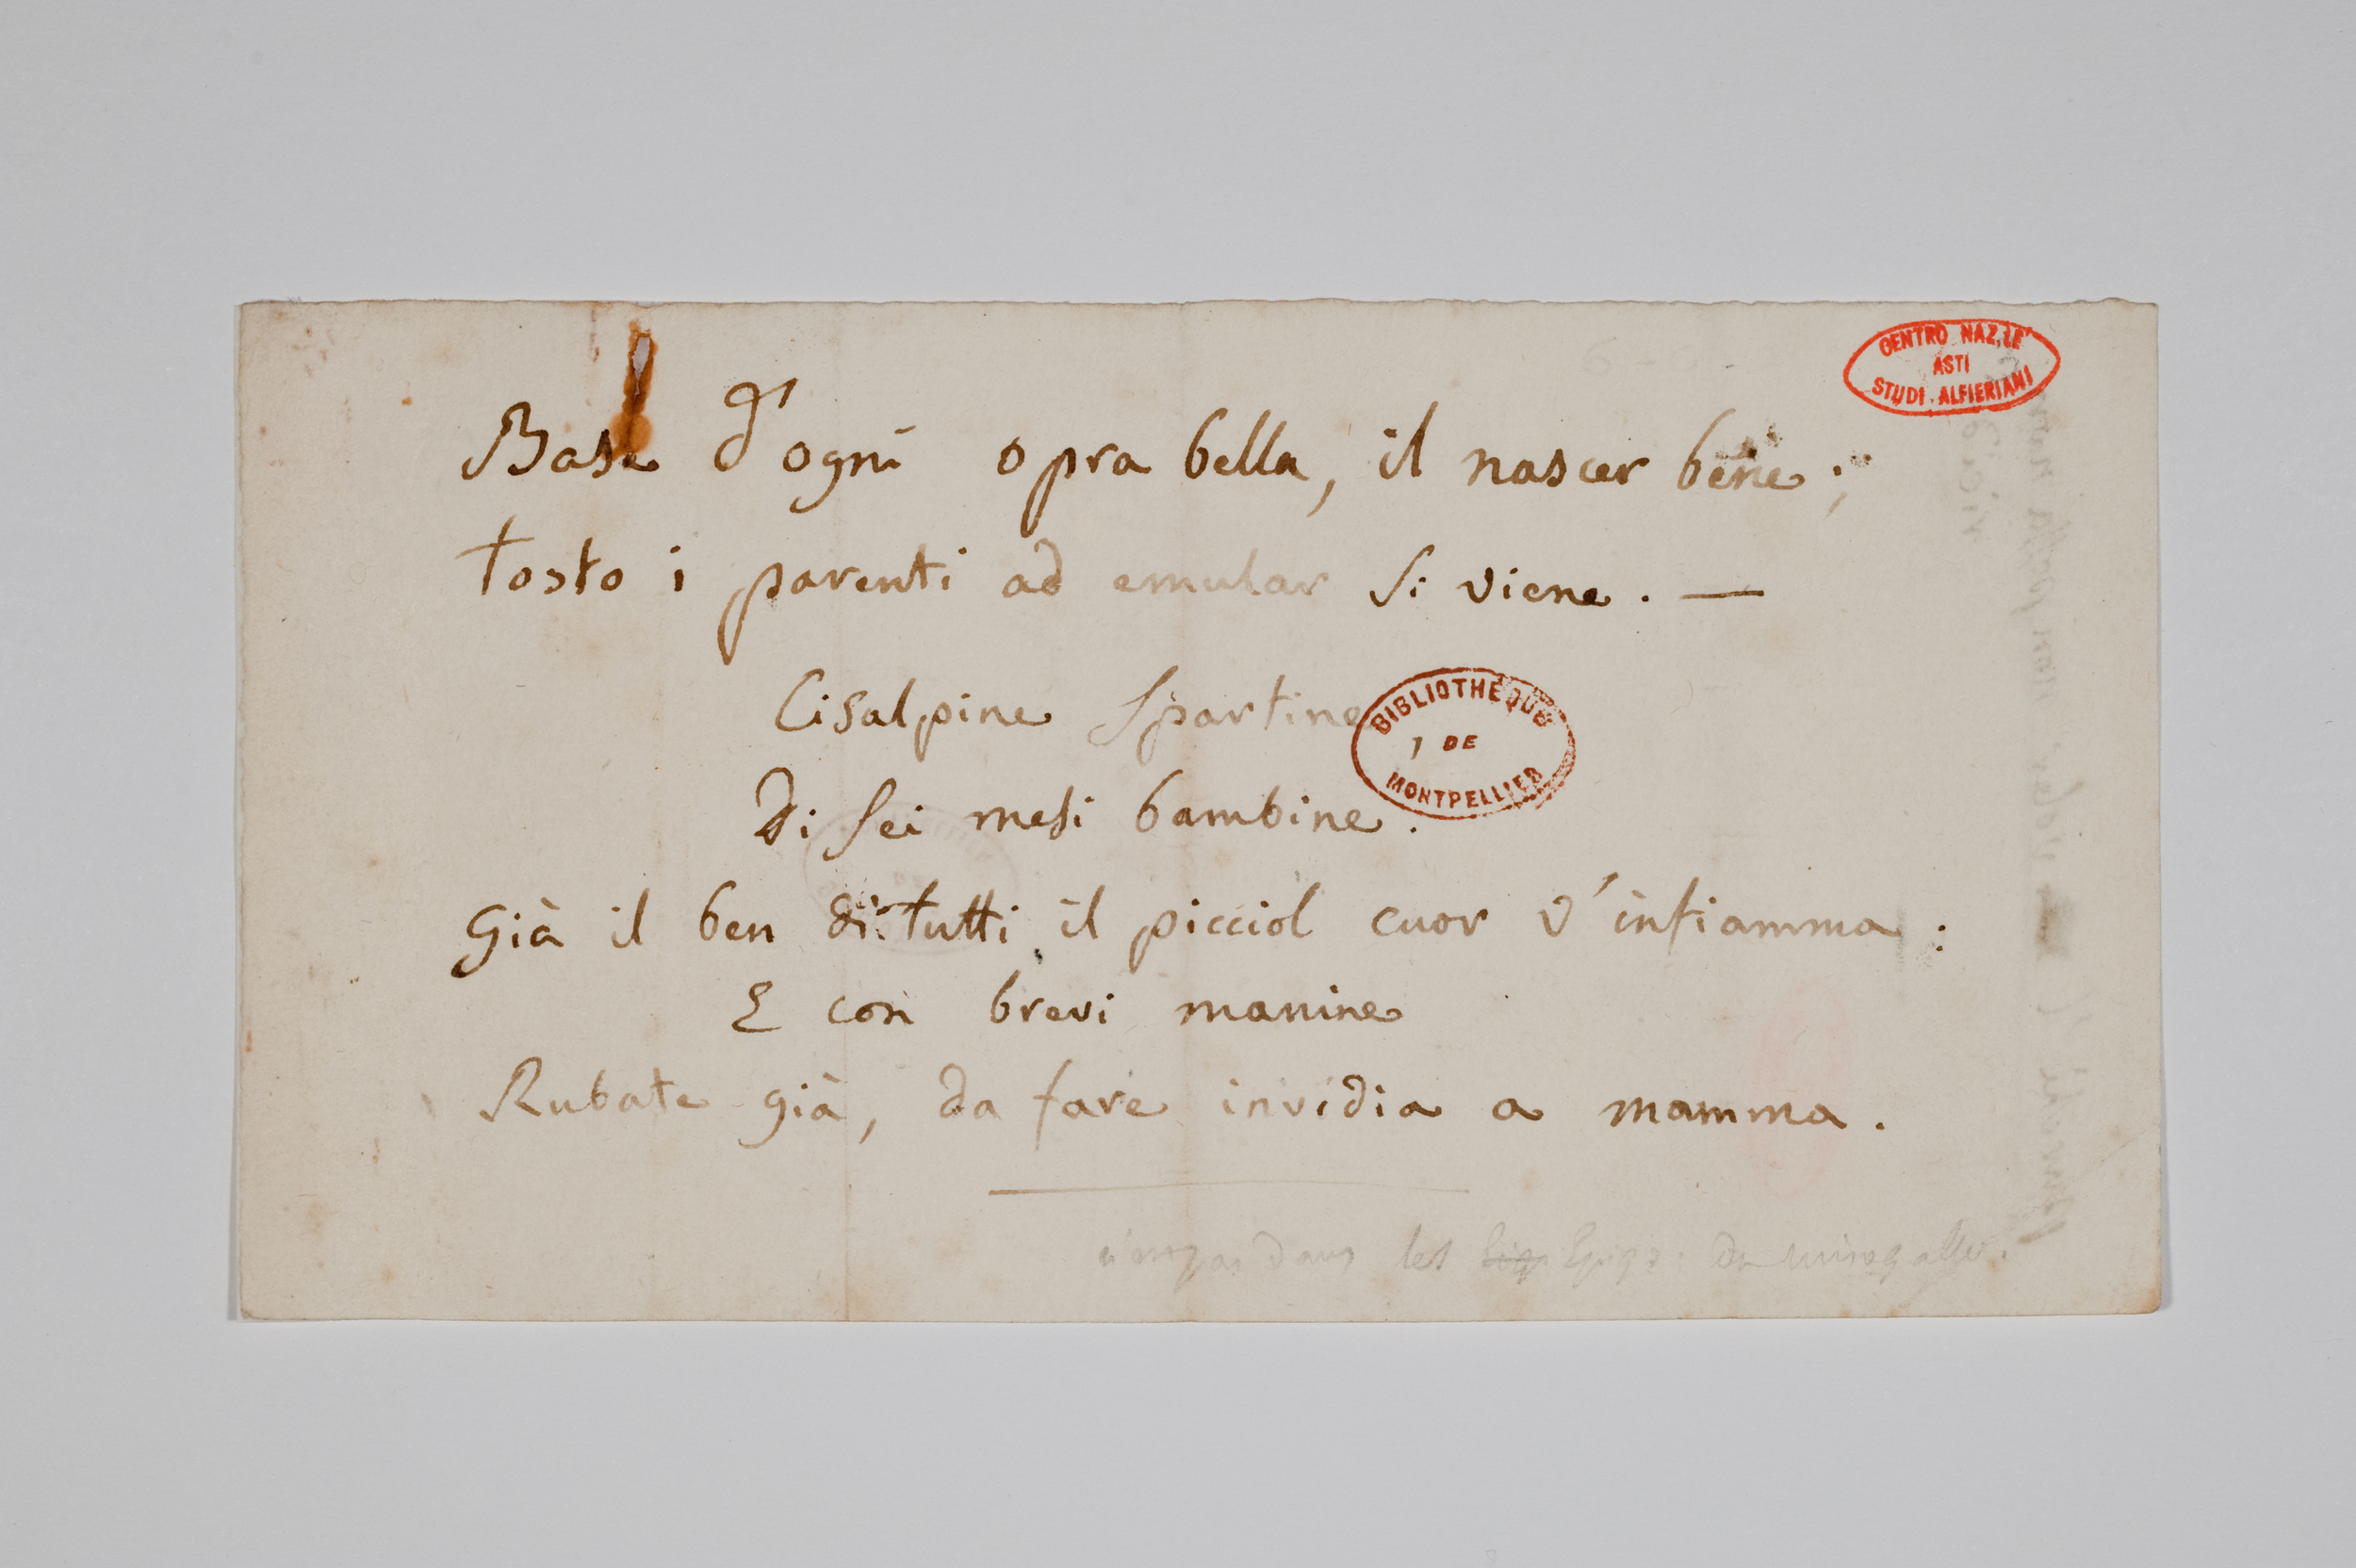 CENTRO NAZ.LE
ASTI
STUDI ALFIERIANI
Base d'ogni opra bella, il nascer bene;
Tosto i parenti ad emular si viene. —
Cisalpine Spartine,
BIBLIOTHÈQUE
DE
MONTPELLIER
Di sei mesi bambine.
Già il ben di tutti il picciol cuor v'infiamma:
E con brevi manine
Rubate già, da fare invidia a mamma.
dans les Epigr. du misogallo.